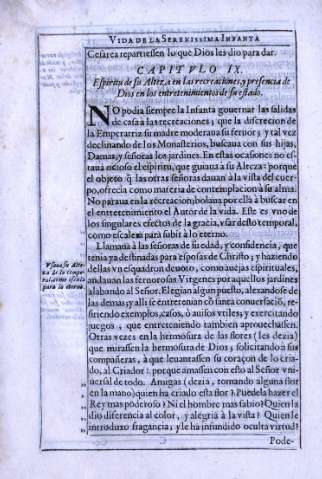 VIDA DE LA SERENISSIMA INFANTA
Cesarea repartiessen lo que Dios les dio para dar.
CAPITVLO IX.
Espiritu de su Alteza en las recreaciones, y presencia de
Dios en los entretenimientos de su estado.
NO podia siempre la Infanta gouernar las salidas
de casa à las recreaciones; que la discrecion de
la Emperatriz su madre moderaua su feruor; y tal vez
declinando de los Monasterios, buscaua con sus hijas,
Damas, y señoras los jardines. En estas ocasiones no es-
taua ocioso el espiritu, que guiaua à su Alteza: porque
el objeto q̃ las otras señoras dauan à la vista del cuer-
po, ofrecia como materia de contemplacion à su alma.
No paraua en la recreacion, bolaua por ella à buscar en
el entretenimiento el Autor de la vida. Este es vno de
los singulares efectos de la gracia, vsar desto temporal,
como escalera para subir à lo eterno.
Llamaua à las señoras de su edad, y confidencia, que
tenia ya destinadas para esposas de Christo; y haziendo
dellas vn esquadron deuoto, como auejas espirituales,
andauan las feruorosas Virgenes por aquellos jardines
alabando al Señor. Elegian algun puesto, alexandose de
las demas; y alli se entretenian cõ santa conuersaciõ, re-
firiendo exemplos, casos, ò auisos vtiles, y exercitando
juegos, que entreteniendo tambien aprouechassen.
Otras vezes en la hermosura de las flores (les dezia)
que mirassen la hermosura de Dios; solicitando à sus
compañeras, à que leuantassen su coraçon de lo cria-
do, al Criador: porque amassen con esto al Señor vni-
uersal de todo. Amigas (dezia, tomando alguna flor
en la mano) quien ha criado esta flor? Puedela hazer el
Rey mas poderoso? Ni el hombre mas sabio? Quien la
dio diferencia al color, y alegria à la vista? Quien le
introduxo fragancia; y le ha infundido oculta virtud?
Pode-
Vsaua su Alte-
za de lo tempo-
ral como escala
para lo eterno.